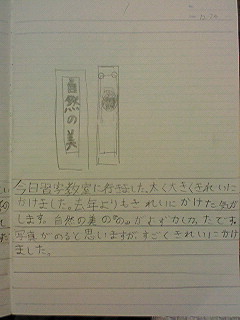 自然の美
今日習字教室に行きました。太く大きくきれいに
かけました。去年よりもきれいにかけた気が
します。自然の美の"の"がよずかしかったです。
写真がのると思いますが、すごくきれいにかけ
ました。